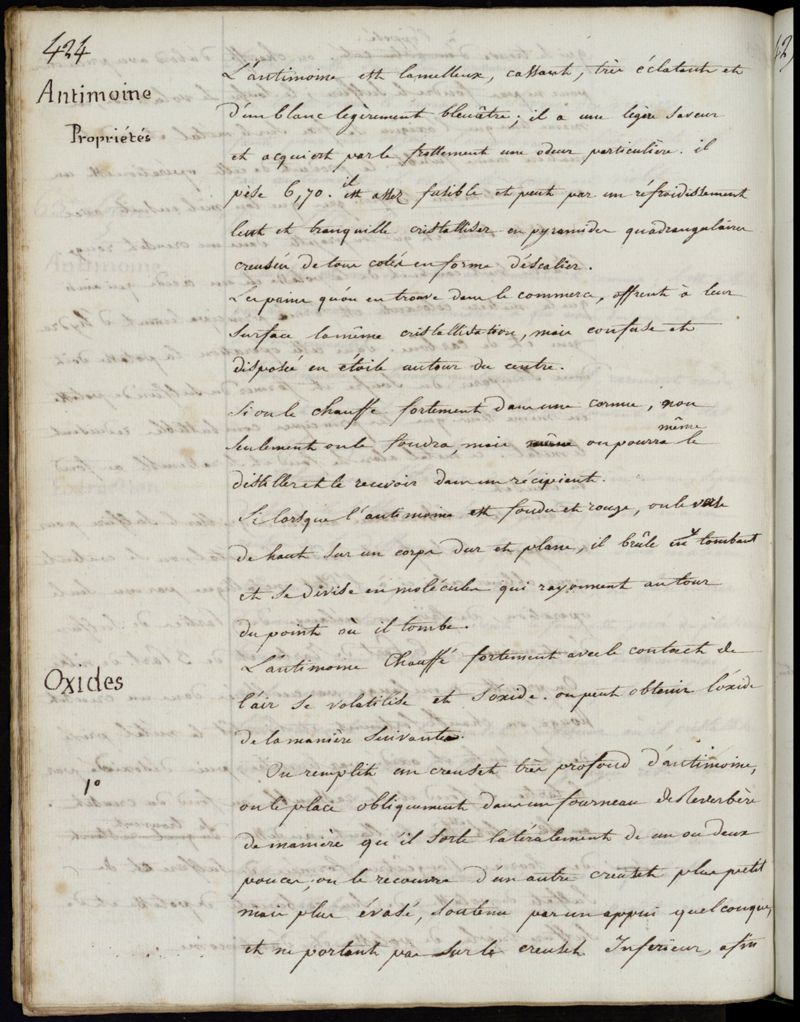 424
Antimoine
Propriétés
L'antimoine est lamelleux, cassant, très éclatant et
d'un blanc legèrement bleuâtre; il a une légère saveur
et acquiert par le frottement une odeur particulière. il
pèse 6,70. il est assez fusible et peut par un réfroidissement
lent et tranquille cristalliser en pyramides quadrangulaires
creusées de tous cotés en forme d'éscalier.
Les pains qu'on en trouve dans le commerce, offrent à leur
surface la même cristallisation, mais confuse et
disposée en étoile autour du centre.
Si on le chauffe fortement dans une cornue, non
seulement on le fondra, mais on pourra même le
distiller et le recevoir dans un récipient.
Si lorsque l'antimoine est fondu et rouge, on le verse
de haut sur un corps dur et plane, il brûle en y tombant
et se divise en molécules qui rayonnent autour
du point où il tombe.
Oxides
L'antimoine chauffé fortement avec le contact de
l'air se volatilise et s'oxide. on peut obtenir l'oxide
de la manière suivante.
1°
On remplit un creuset très profond d'antimoine,
on le place obliquement dans un fourneau de Reverbère
de manière qu'il sorte latéralement de un ou deux
pouces; on le recouvre d'un autre creuset plus petit
mais plus évasé, soutenu par un appui quelconque,
et ne portant pas sur le creuset Inferieur, afin